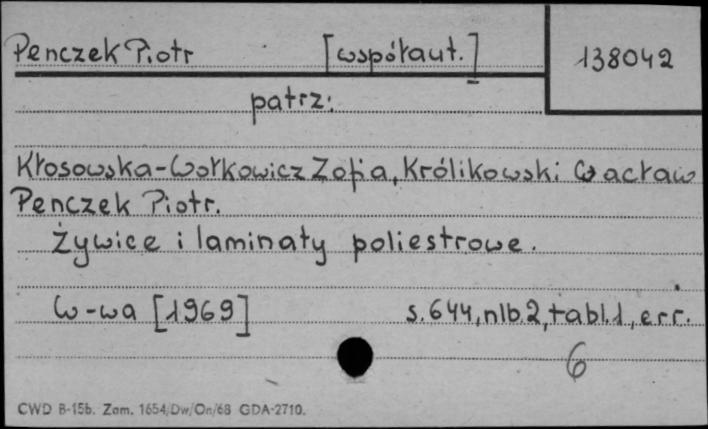 Penczek Piotr [współaut.] 138042
patrz:
Kłosowska-Wołkowicz Zofia, Królikowski Wacław
Penczek Piotr.
Żywice i laminaty poliestrowe.
W-wa [1969] s. 644, nlb. 2, tabl. 1, err.
6
CWD B-15b. Zam. 1654/Dw/On/68 GDA-2710.